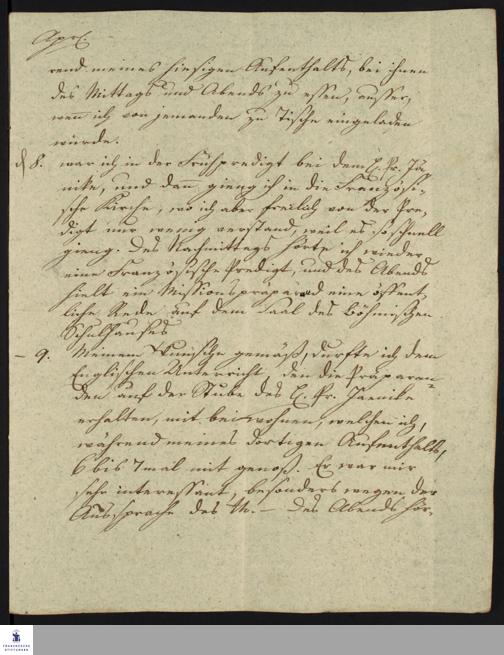 Apr.
rend meines hiesigen Aufenthalts, bei ihnen
des Mittags und Abends zu essen, ausser,
wen ich von jemanden zu Tische eingeladen
würde.
d 8. war ich in der Frühpredigt bei dem H. Pr. Jä-
nike, und dan gieng ich in die Französi-
sche Kirche, wo ich aber freilich von der Pre-
digt nur wenig verstand, weil es so schnell
gieng. Des Nachmittags hörte ich wieder
eine Französische Predigt, und des Abends
hielt ein Missionspräparand eine öffent-
liche Rede auf dem Saal des böhmischen
Schulhauses
– 9. Meinem Wunsche gemäß, durfte ich dem
Englischen Unterricht, den die Präparan-
den auf der Stube des H. Pr. Jaenike
erhalten, mit bei wohnen, welchen ich,
während meines dortigen Aufenthalts,
6 bis 7 mal mit genoß. Er war mir
sehr interessant, besonders wegen der
Aussprache des th. – Des Abends hör-
FRANCKESCHE
STIFTUNGEN